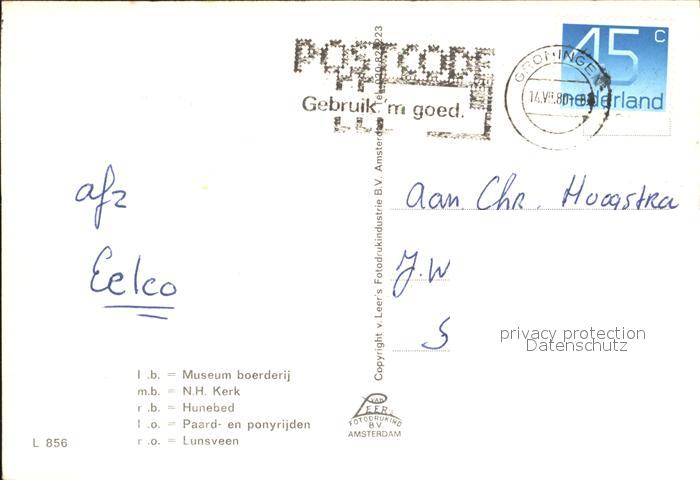 POSTCODE
Gebruik 'm goed.
GRONINGEN
45 c
nederland
afz
Eelco
Aan. Chr. Hoogstra
J.W
S
privacy protection
Datenschutz
Copyright v. Leer's Fotodrukindustrie B.V. Amsterdam
l .b. = Museum boerderij
m.b. = N.H. Kerk
r .b. = Hunebed
l .o. = Paard- en ponyrijden
r .o. = Lunsveen
L 856
VAN
LEER'S
FOTODRUKIND
B.V.
AMSTERDAM